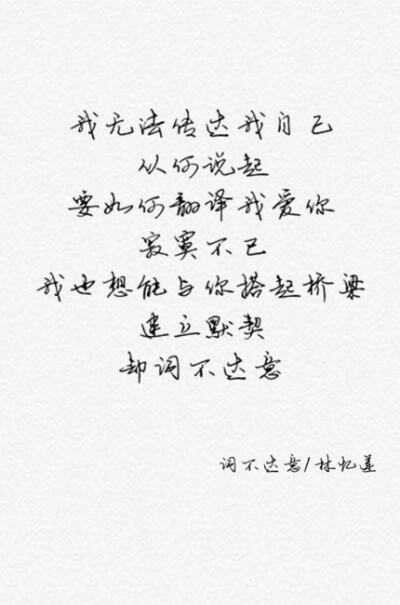 我无法传达我自己
从何说起
要如何翻译我爱你
寂寞不已
我也想能与你搭起桥梁
建立默契
却词不达意
词不达意/林忆莲